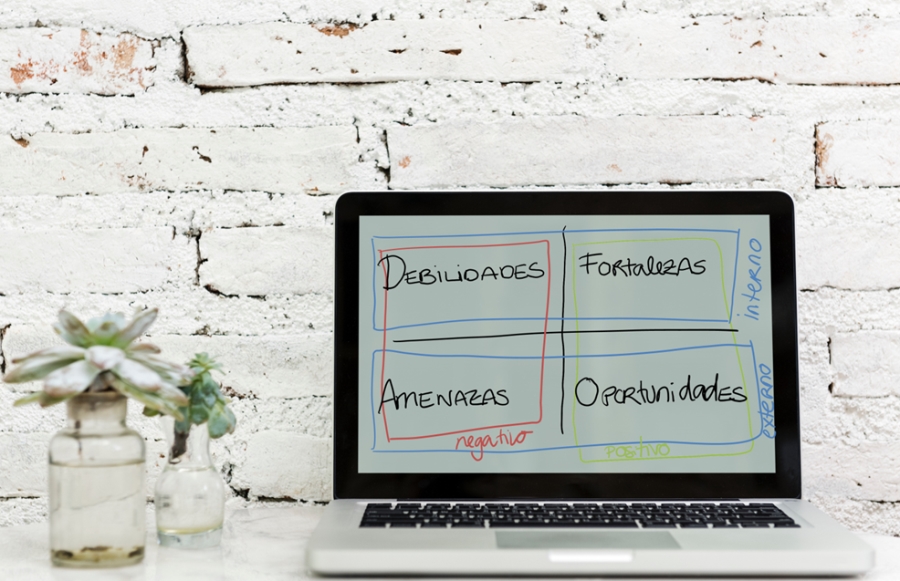 DEBILIDADES
FortalezAs
interno
AMENAZAS
Oportunidades
externo
negativo
positivo